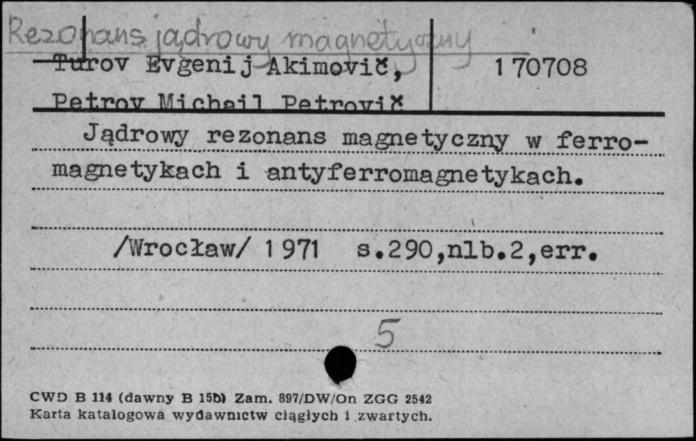 Rezonans jądrowy magnetyczny
Turov Evgenij Akimovič, 170708
Petrov Michail Petrovič
Jądrowy rezonans magnetyczny w ferro-
magnetykach i antyferromagnetykach.
/Wrocław/ 1971 s.290,nlb.2,err.
5
CWD B 114 (dawny B 15b) Zam. 897/DW/On ZGG 2542
Karta katalogowa wydawnictw ciągłych i zwartych.